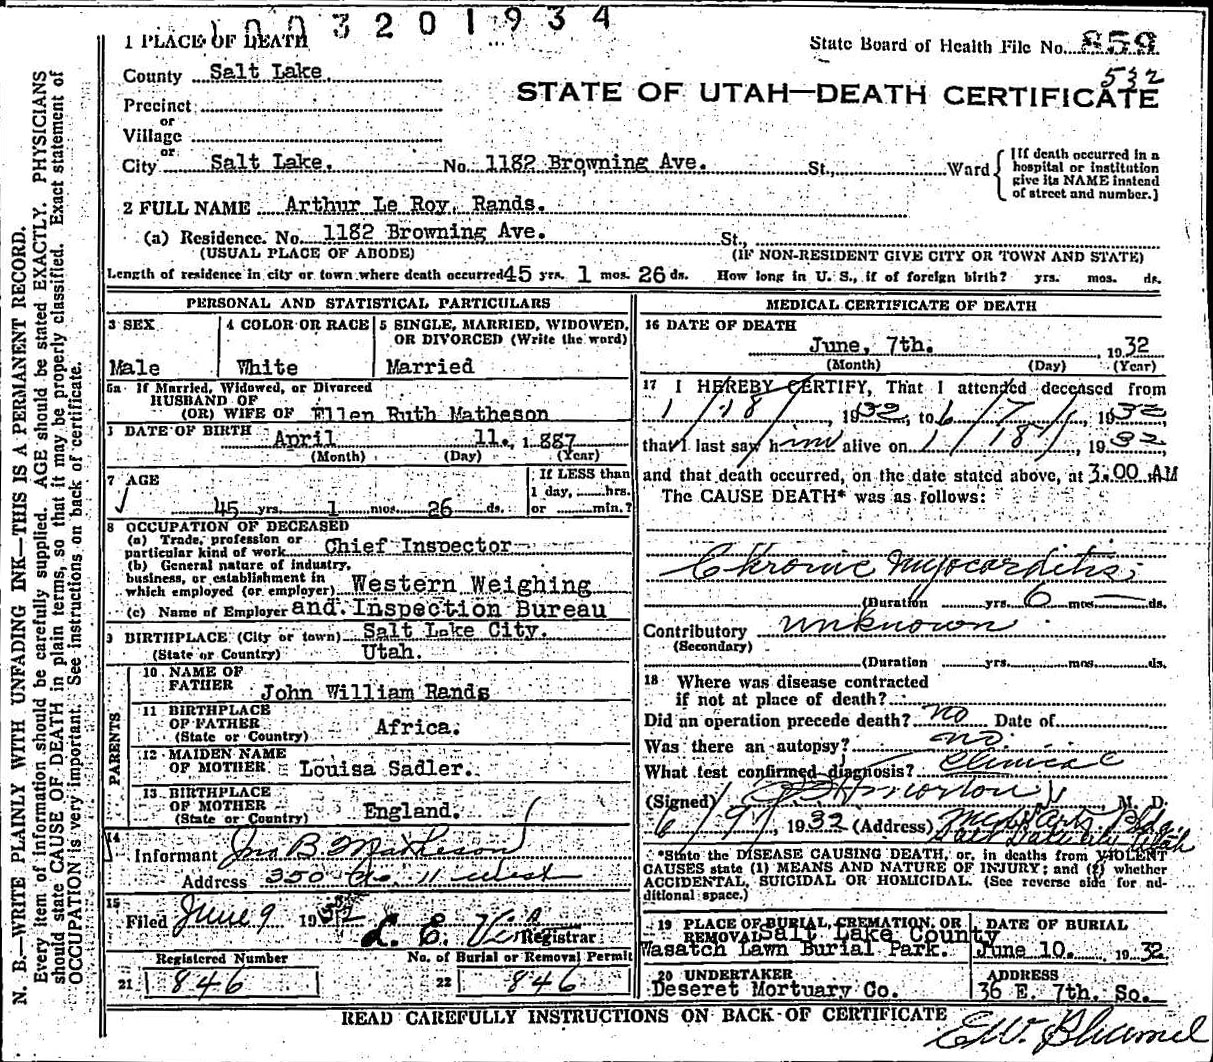 1003201934
State Board of Health File No. 859
532
1 PLACE OF DEATH
County Salt Lake.
STATE OF UTAH—DEATH CERTIFICATE
Precinct
or
Village
or
City Salt Lake. No. 1182 Browning Ave. St., Ward
[If death occurred in a hospital or institution give its NAME instead of street and number.]
2 FULL NAME Arthur Le Roy, Rands.
(a) Residence. No. 1182 Browning Ave. St.,
(USUAL PLACE OF ABODE) (IF NON-RESIDENT GIVE CITY OR TOWN AND STATE)
Length of residence in city or town where death occurred 45 yrs. 1 mos. 26 ds. How long in U. S., if of foreign birth? yrs. mos. ds.
PERSONAL AND STATISTICAL PARTICULARS
3 SEX
Male
4 COLOR OR RACE
White
5 SINGLE, MARRIED, WIDOWED,
OR DIVORCED (Write the word)
Married
5a If Married, Widowed, or Divorced
HUSBAND OF
(OR) WIFE OF Ellen Ruth Matheson
DATE OF BIRTH April 11., 1887
(Month) (Day) (Year)
7 AGE
45 yrs. 1 mos. 26 ds.
If LESS than
1 day, hrs.
or min.?
8 OCCUPATION OF DECEASED
(a) Trade, profession or
particular kind of work Chief Inspector
(b) General nature of industry,
business, or establishment in
which employed (or employer) Western Weighing
(c) Name of Employer and Inspection Bureau
9 BIRTHPLACE (City or town) Salt Lake City.
(State or Country) Utah.
PARENTS
10 NAME OF
FATHER John William Rands
11 BIRTHPLACE
OF FATHER Africa.
(State or Country)
12 MAIDEN NAME
OF MOTHER Louisa Sadler.
13 BIRTHPLACE
OF MOTHER England.
(State or Country)
14
Informant Jno B. Matheson
Address 350 11 West
15
Filed June 9 1932 L. E. Registrar
Registered Number
21 846
No. of Burial or Removal Permit
22 846
MEDICAL CERTIFICATE OF DEATH
16 DATE OF DEATH
June, 7th. 1932
(Month) (Day) (Year)
17 I HEREBY CERTIFY, That I attended deceased from
1/18/, 1932, to 6/7/, 1932
that I last saw him alive on 1/18/, 1932
and that death occurred, on the date stated above, at 3:00 AM
The CAUSE DEATH* was as follows:
Chronic Myocarditis
(Duration yrs. 6 mos. ds.
Contributory unknown
(Secondary)
(Duration yrs. mos. ds.
18 Where was disease contracted
if not at place of death?
Did an operation precede death? no Date of
Was there an autopsy? no.
What test confirmed diagnosis? Clinical
(Signed) Morton M. D.
6/9/, 1932 (Address) Med Arts Bldg
Salt Lake City Utah
*State the DISEASE CAUSING DEATH, or, in deaths from VIOLENT
CAUSES state (1) MEANS AND NATURE OF INJURY; and (2) whether
ACCIDENTAL, SUICIDAL OR HOMICIDAL. (See reverse side for ad-
ditional space.)
19 PLACE OF BURIAL, CREMATION, OR
REMOVAL Salt Lake County
Wasatch Lawn Burial Park.
DATE OF BURIAL
June 10. 1932
20 UNDERTAKER
Deseret Mortuary Co.
ADDRESS
36 E. 7th. So.
READ CAREFULLY INSTRUCTIONS ON BACK OF CERTIFICATE
N. B.—WRITE PLAINLY WITH UNFADING INK—THIS IS A PERMANENT RECORD.
Every item of information should be carefully supplied. AGE should be stated EXACTLY. PHYSICIANS
should state CAUSE OF DEATH in plain terms, so that it may be properly classified. Exact statement of
OCCUPATION is very important. See instructions on back of certificate.